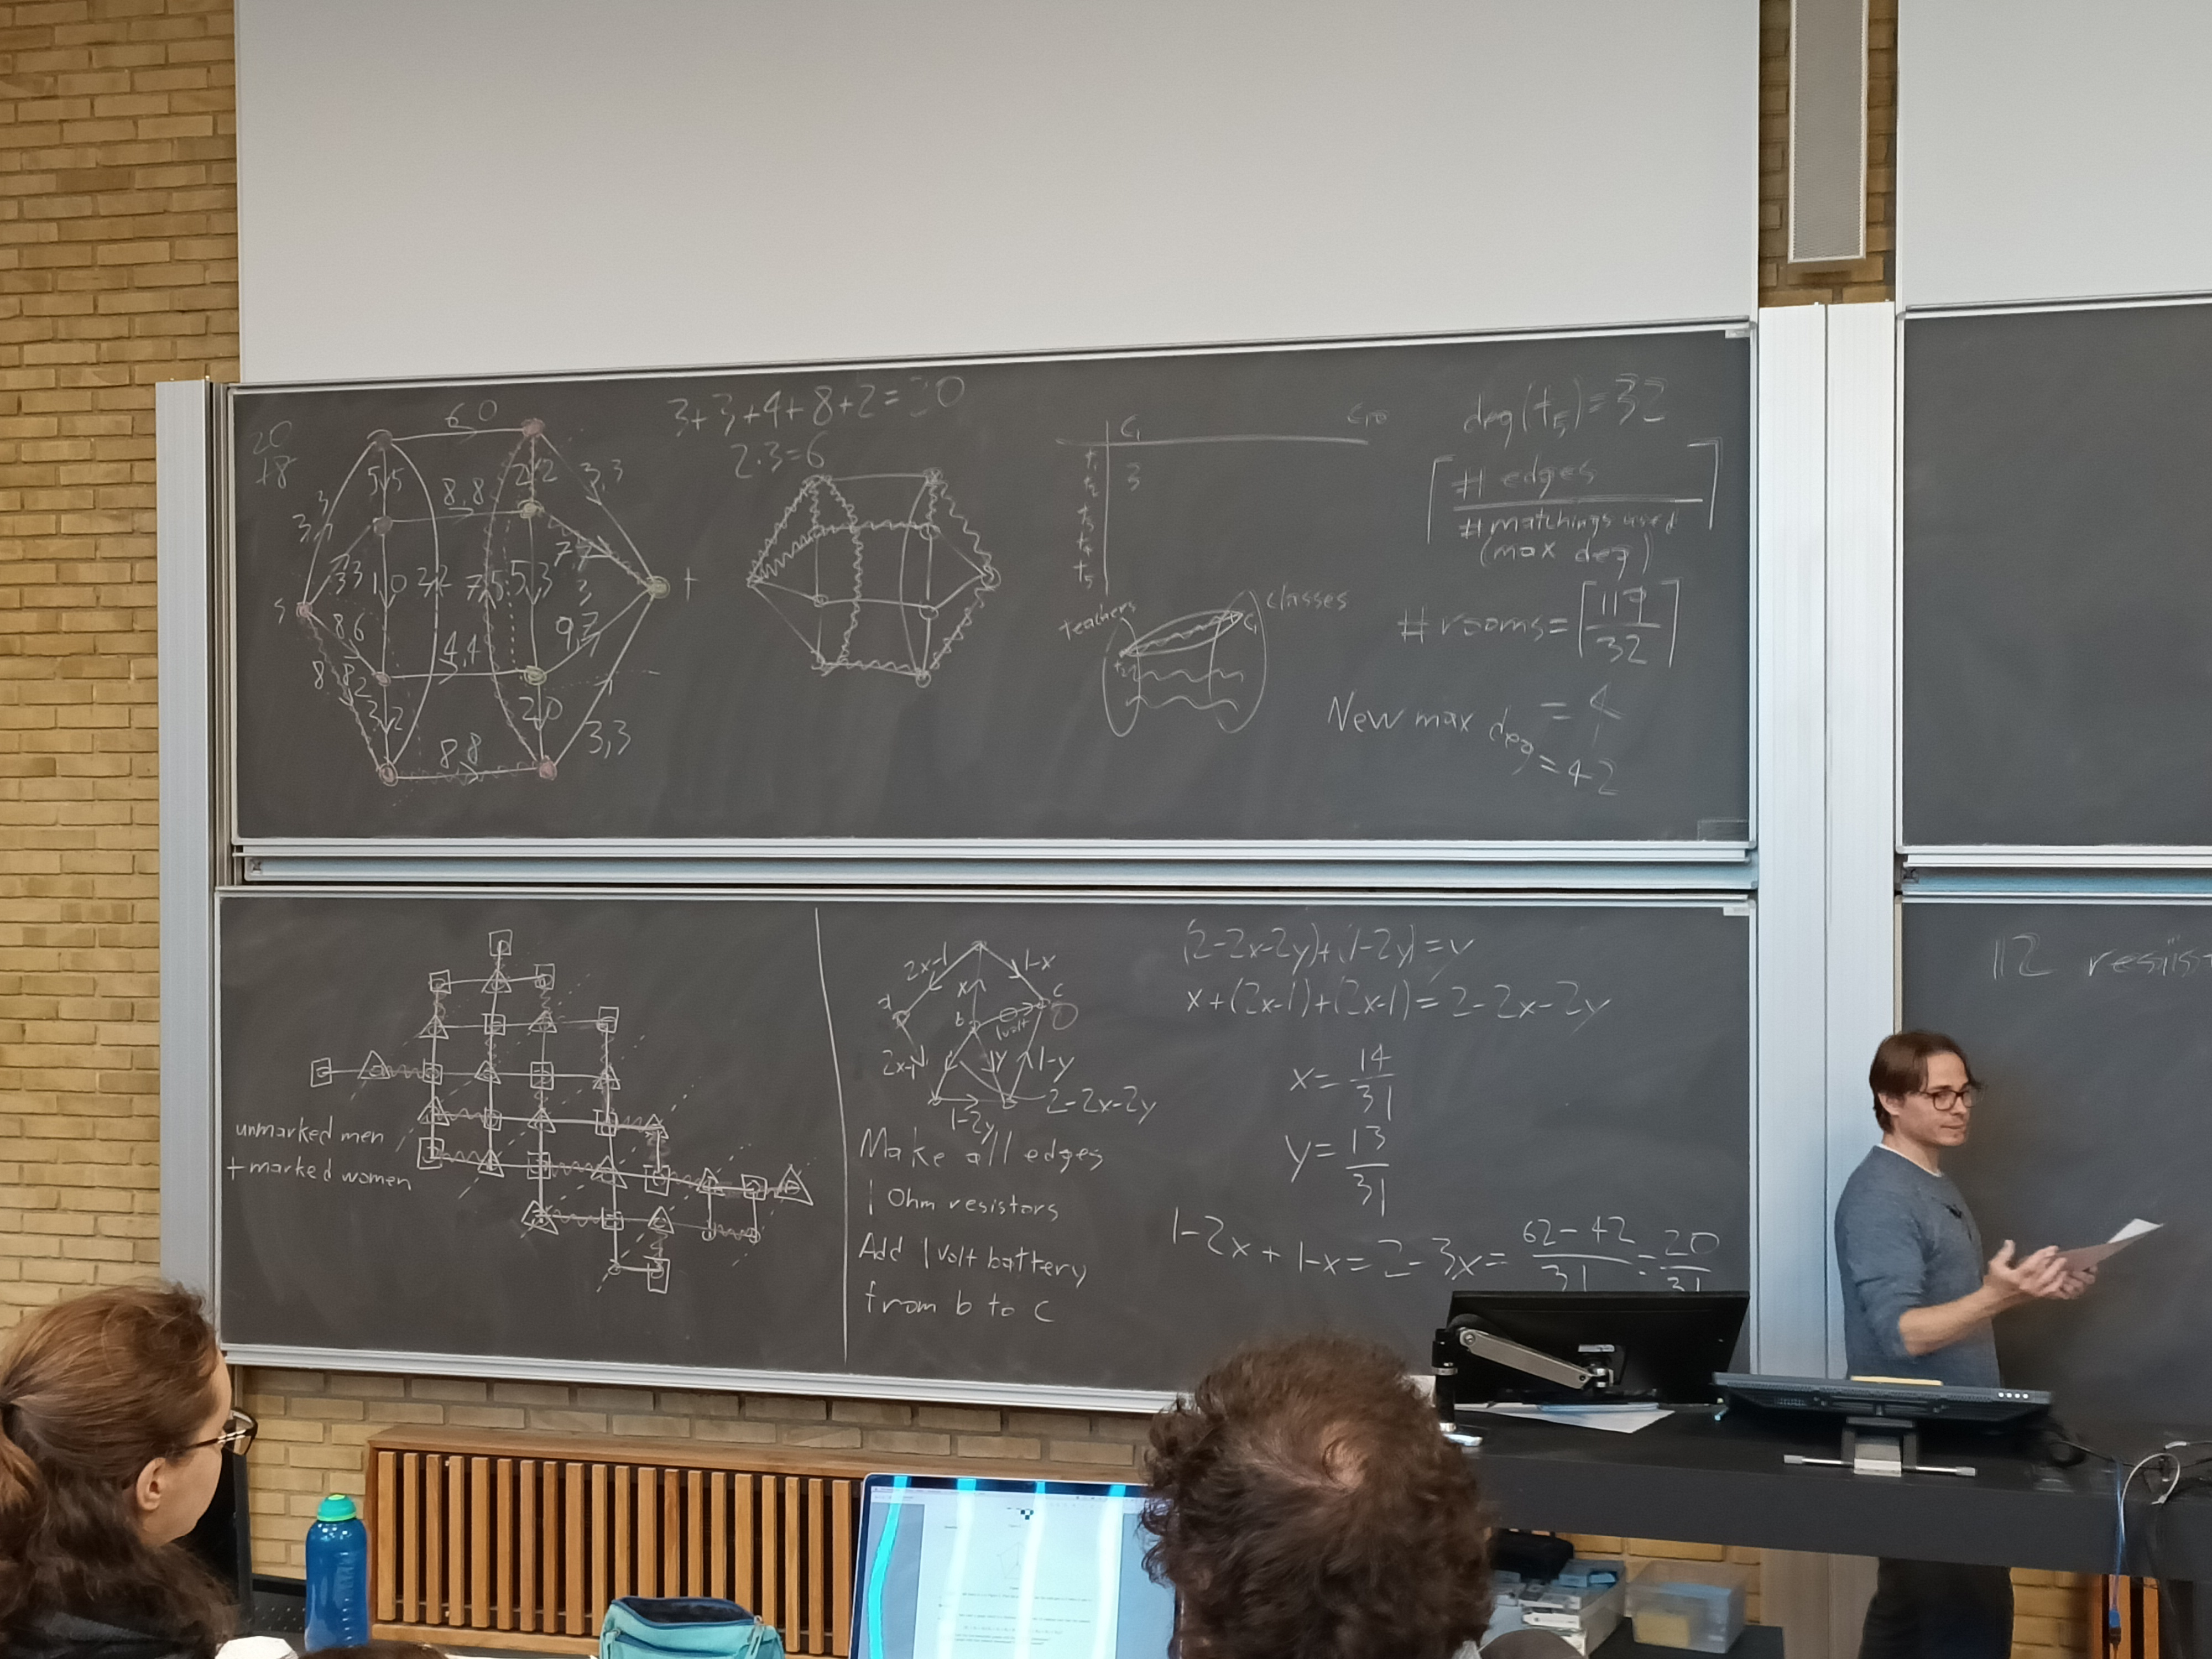 20
+8
6,0
5,5
8,8
2,2
3,3
3,3
3,3
1,0
7,5
5,3
7,7
s
t
8,6
4,4
9,7
8,8
3,2
2,0
8,8
3,3
3+3+4+8+2=20
2·3=6
c₁
c₁₀
t₁
t₂
t₃
t₄
t₅
3
teachers
classes
c₁
deg(t₅)=32
# edges
# matchings used
(max deg)
# rooms = ⌈119/32⌉
= 4
New max deg = 42
unmarked men
+ marked women
2x-1
1-x
a
x
c
b
1 volt
0
2x-1
y
1-y
1-2y
2-2x-2y
Make all edges
1 Ohm resistors
Add 1 volt battery
from b to c
(2-2x-2y)+(1-2y)=y
x+(2x-1)+(2x-1)=2-2x-2y
x=14/31
y=13/31
1-2x+1-x=2-3x=62-42/31=20/31
112